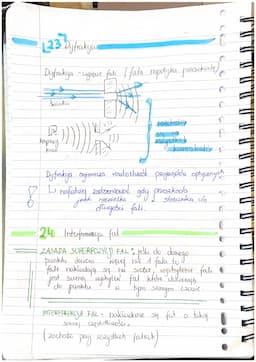 23 Dyfrakcja
Dyfrakcja - ugięcie fali (fala napotyka przeszkodę)
Dyfrakcja ogranicza rozdzielczość przyrządów optycznych
najłatwiej zaobserwować gdy przeszkoda
jest niewielka w stosunku do
długości fali.
24 Interferencja fal
ZASADA SUPERPOZYCJI FAL: jeśli do danego
punktu dociera więcej niż 1 fala to
fale nakładają się na siebie, wypadkowa fala
jest sumą wychyleń fal które docierają
do punktu w tym samym czasie
INTERFERENCJA FAL - nakładanie się fal o takiej
samej częstotliwości.
(zachodzi przy wszystkich falach)